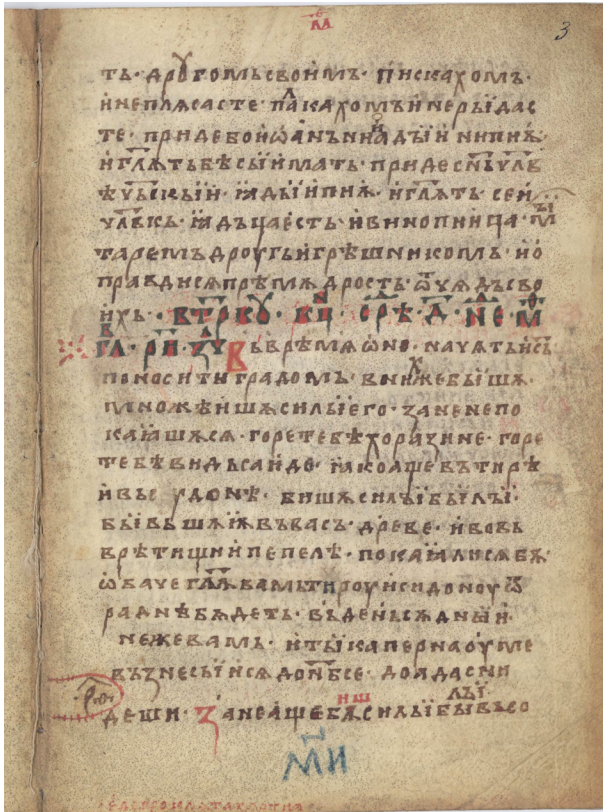 3
ть· дрꙋгомь своимъ· пискахомъ·
и не плѧсасте· плакахомъ и не рыдас
те· приде бо иѡанъ ни ꙗдыи ни пиѧ·
и гл҃ѧть бѣсы имать· приде сн҃ь чл҃в
ѣчьскыи· ꙗдыи и пиѧ· и гл҃ѧть· сеи
чл҃вкь· ꙗдьца есть· и винопиица· мы
таремъ дроугь и грѣшникомъ· и ѡ
правдисѧ прѣмѫдрость· ѿ чѧдъ сво
ихь· вт҃ркꙋ· срѣ·д·не·
гл·рп·зч Въ врѣмѧ ѡно· начѧть іс҃ь
поносити градомъ· в нихже бышѧ
множѣишѧ силы его· занене по
каꙗшѧсѧ· горе тебѣ хоразине· горе
тебѣ видьсаидо· ꙗко аще въ тирѣ
и вь сѵдонѣ· бишѧ силы были·
бывьшѧѧ въ васъ· древе· и вовь
врѣтищи и пепелѣ· покаꙗлисѧ бѧ
ѡбаче гл҃ѧ вамь тироу и сидоноу ѿ
раднѣ бѫдеть· въ день сѫдныи·
неже вамь· и ты капернаоуме
възнесыисѧ до нб҃се· до ада сни
деши· Зане аще бѫ силы бывьсо
ми